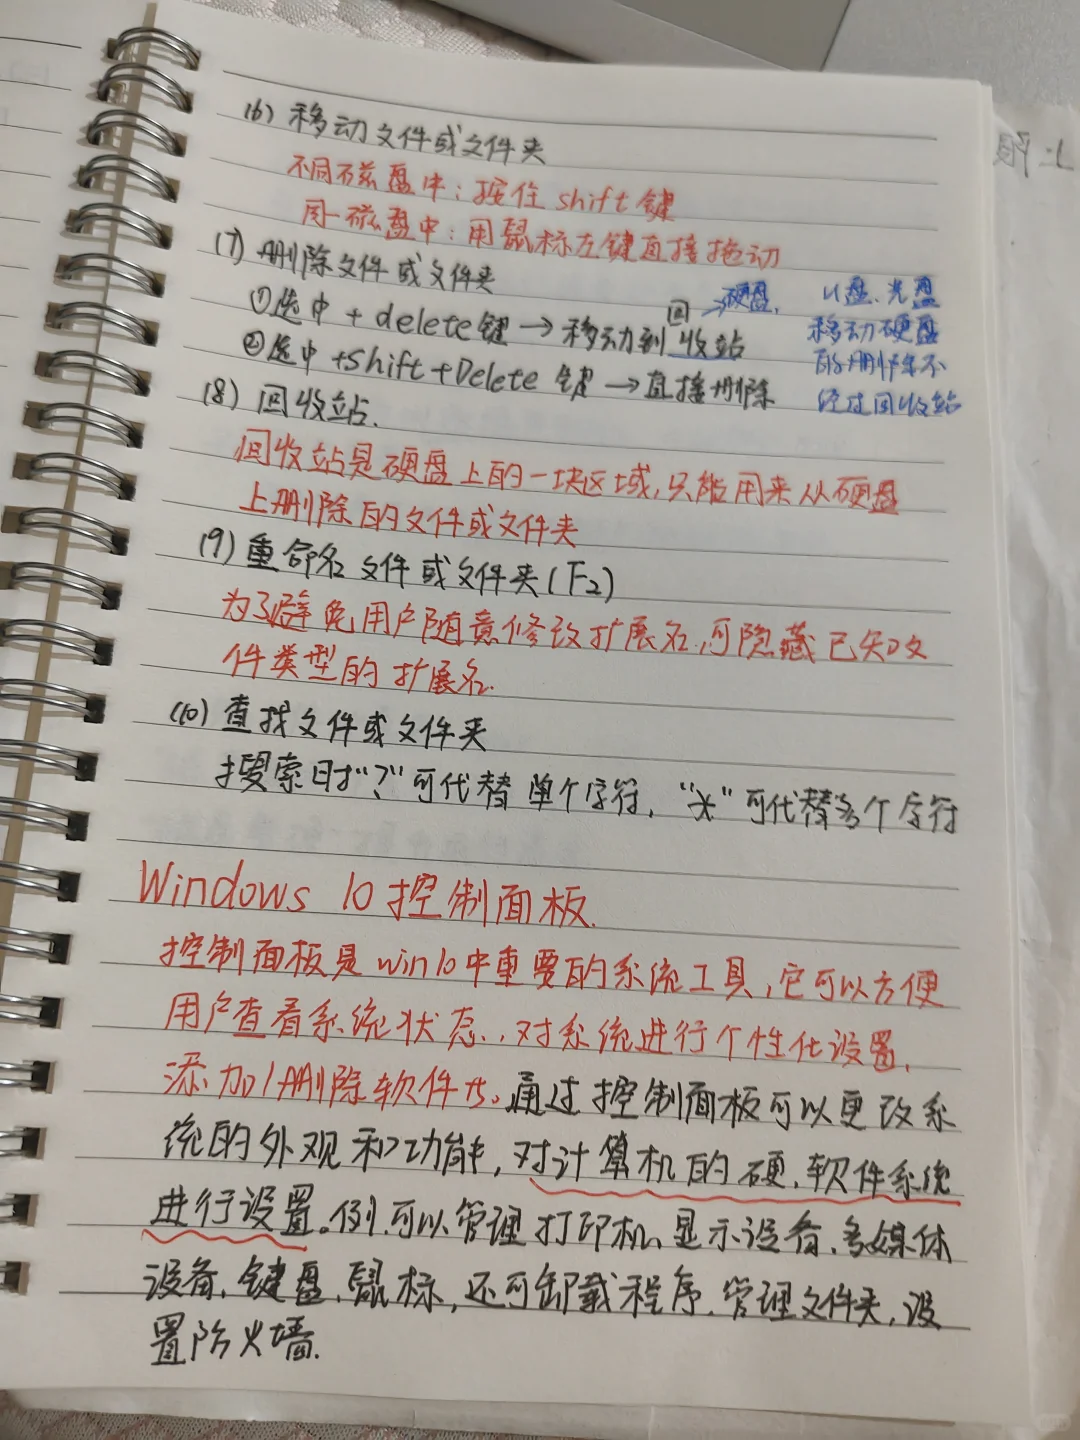 (6) 移动文件或文件夹
不同磁盘中：按住 shift 键
同一磁盘中：用鼠标左键直接拖动
(7) 删除文件或文件夹
①选中 + delete键 → 移动到回收站
②选中 +Shift+Delete 键 → 直接删除
→硬盘, U盘、光盘
移动硬盘
的删除不
经过回收站
(8) 回收站.
回收站是硬盘上的一块区域,只能用来从硬盘
上删除的文件或文件夹
(9) 重命名文件或文件夹(F2)
为了避免用户随意修改扩展名,可隐藏已知文
件类型的扩展名.
(10) 查找文件或文件夹
搜索时“?”可代替单个字符, “*”可代替多个字符
Windows 10 控制面板.
控制面板是win10中重要的系统工具,它可以方便
用户查看系统状态,对系统进行个性化设置,
添加/删除软件等。通过控制面板可以更改系
统的外观和功能,对计算机的硬、软件系统
进行设置。例,可以管理打印机、显示设备、多媒体
设备、键盘、鼠标,还可卸载程序、管理文件夹,设
置防火墙.